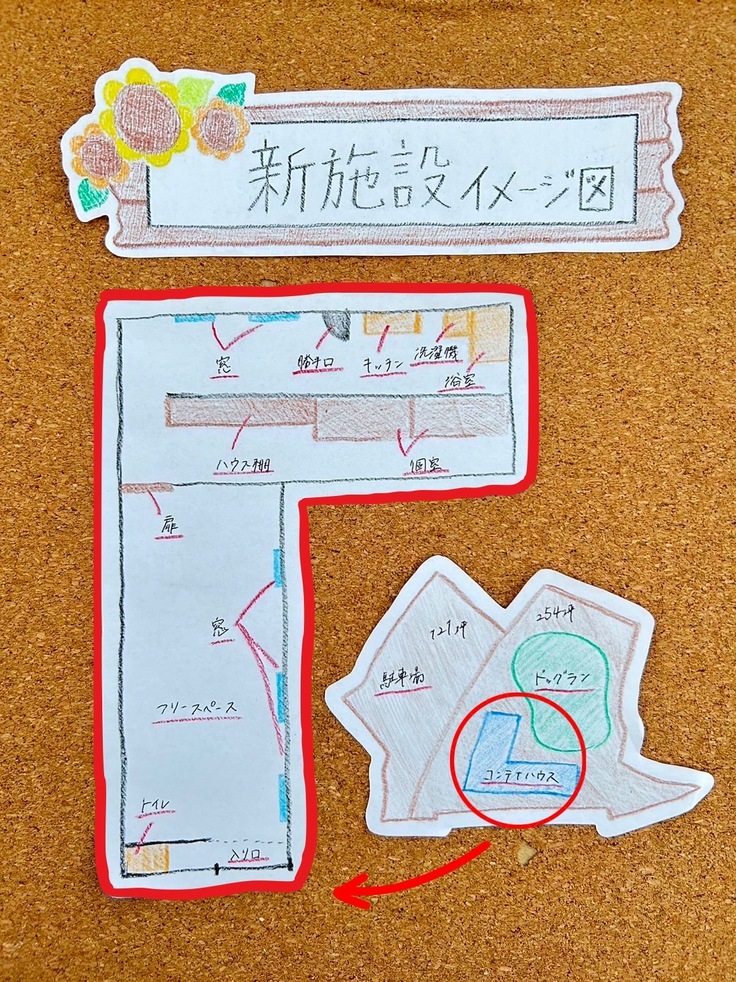 新施設イメージ図
窓
勝手口
キッチン
洗濯機
浴室
ハウス棚
個室
扉
窓
フリースペース
トイレ
入り口
121坪
駐車場
254坪
ドッグラン
コンテナハウス